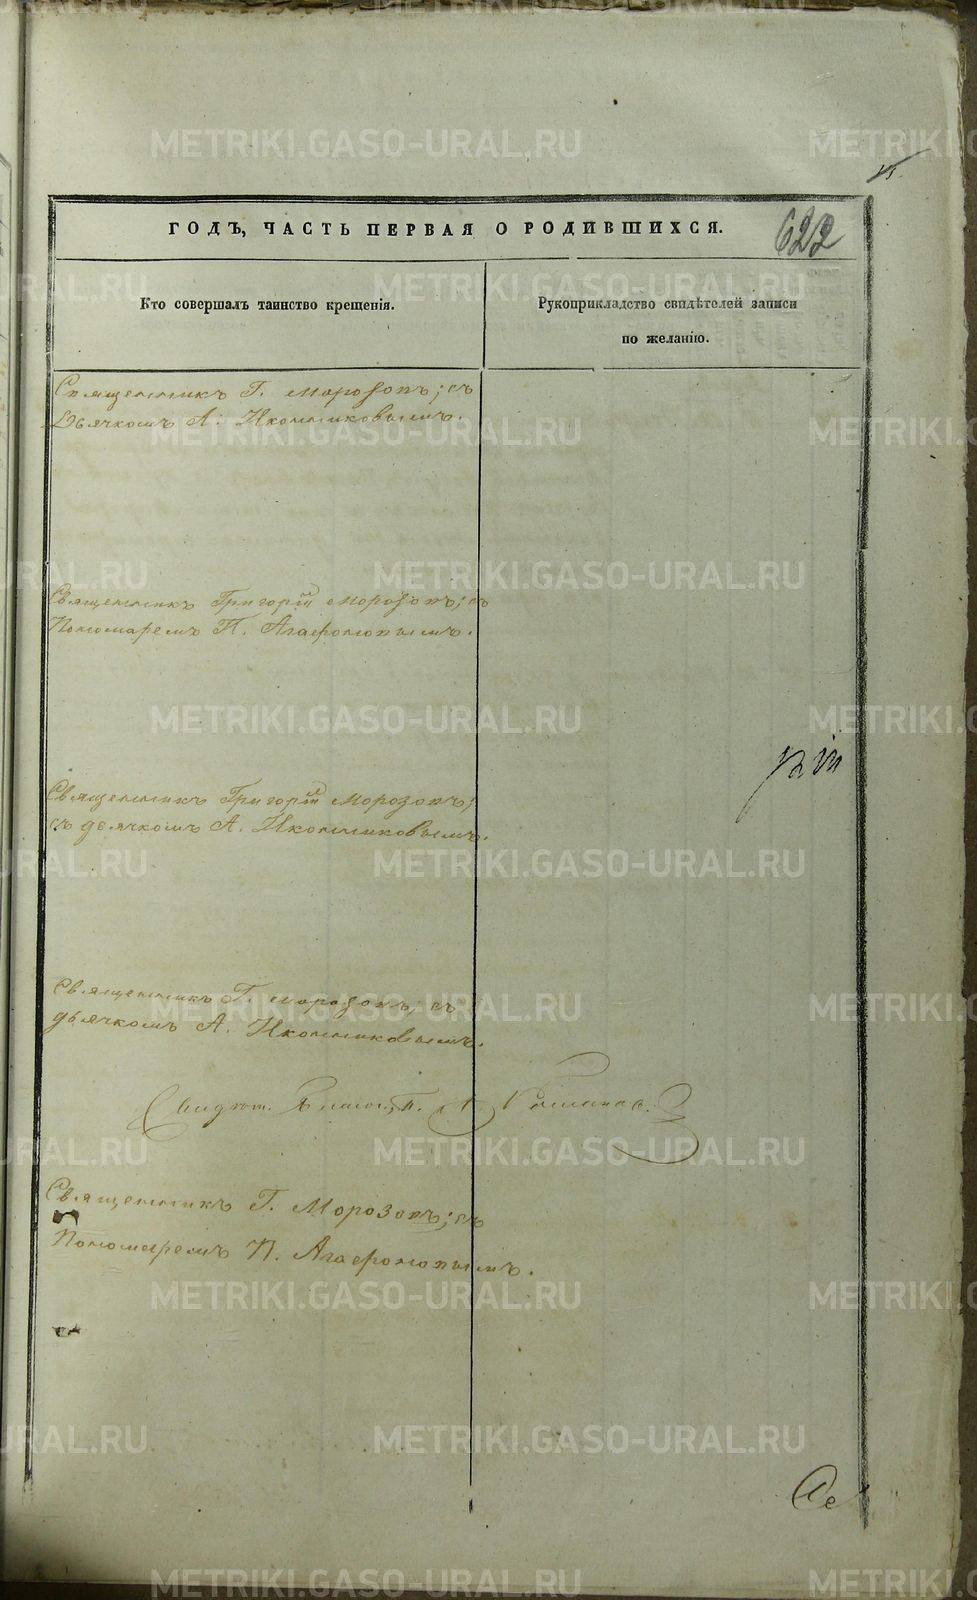 622
ГОДЪ, ЧАСТЬ ПЕРВАЯ О РОДИВШИХСЯ.
Кто совершалъ таинство крещенія.
Рукоприкладство свидѣтелей записи
по желанію.
Священникъ Г. Морозовъ; съ
Дьячкомъ А. Иконниковымъ.
Священникъ Григорій Морозовъ; съ
Пономаремъ П. Агафоновымъ.
Священникъ Григорій Морозовъ;
съ дьячкомъ А. Иконниковымъ.
Священникъ Г. Морозовъ; съ
дьячкомъ А. Иконниковымъ.
Священникъ Г. Морозовъ; съ
Пономаремъ П. Агафоновымъ.
METRIKI.GASO-URAL.RU